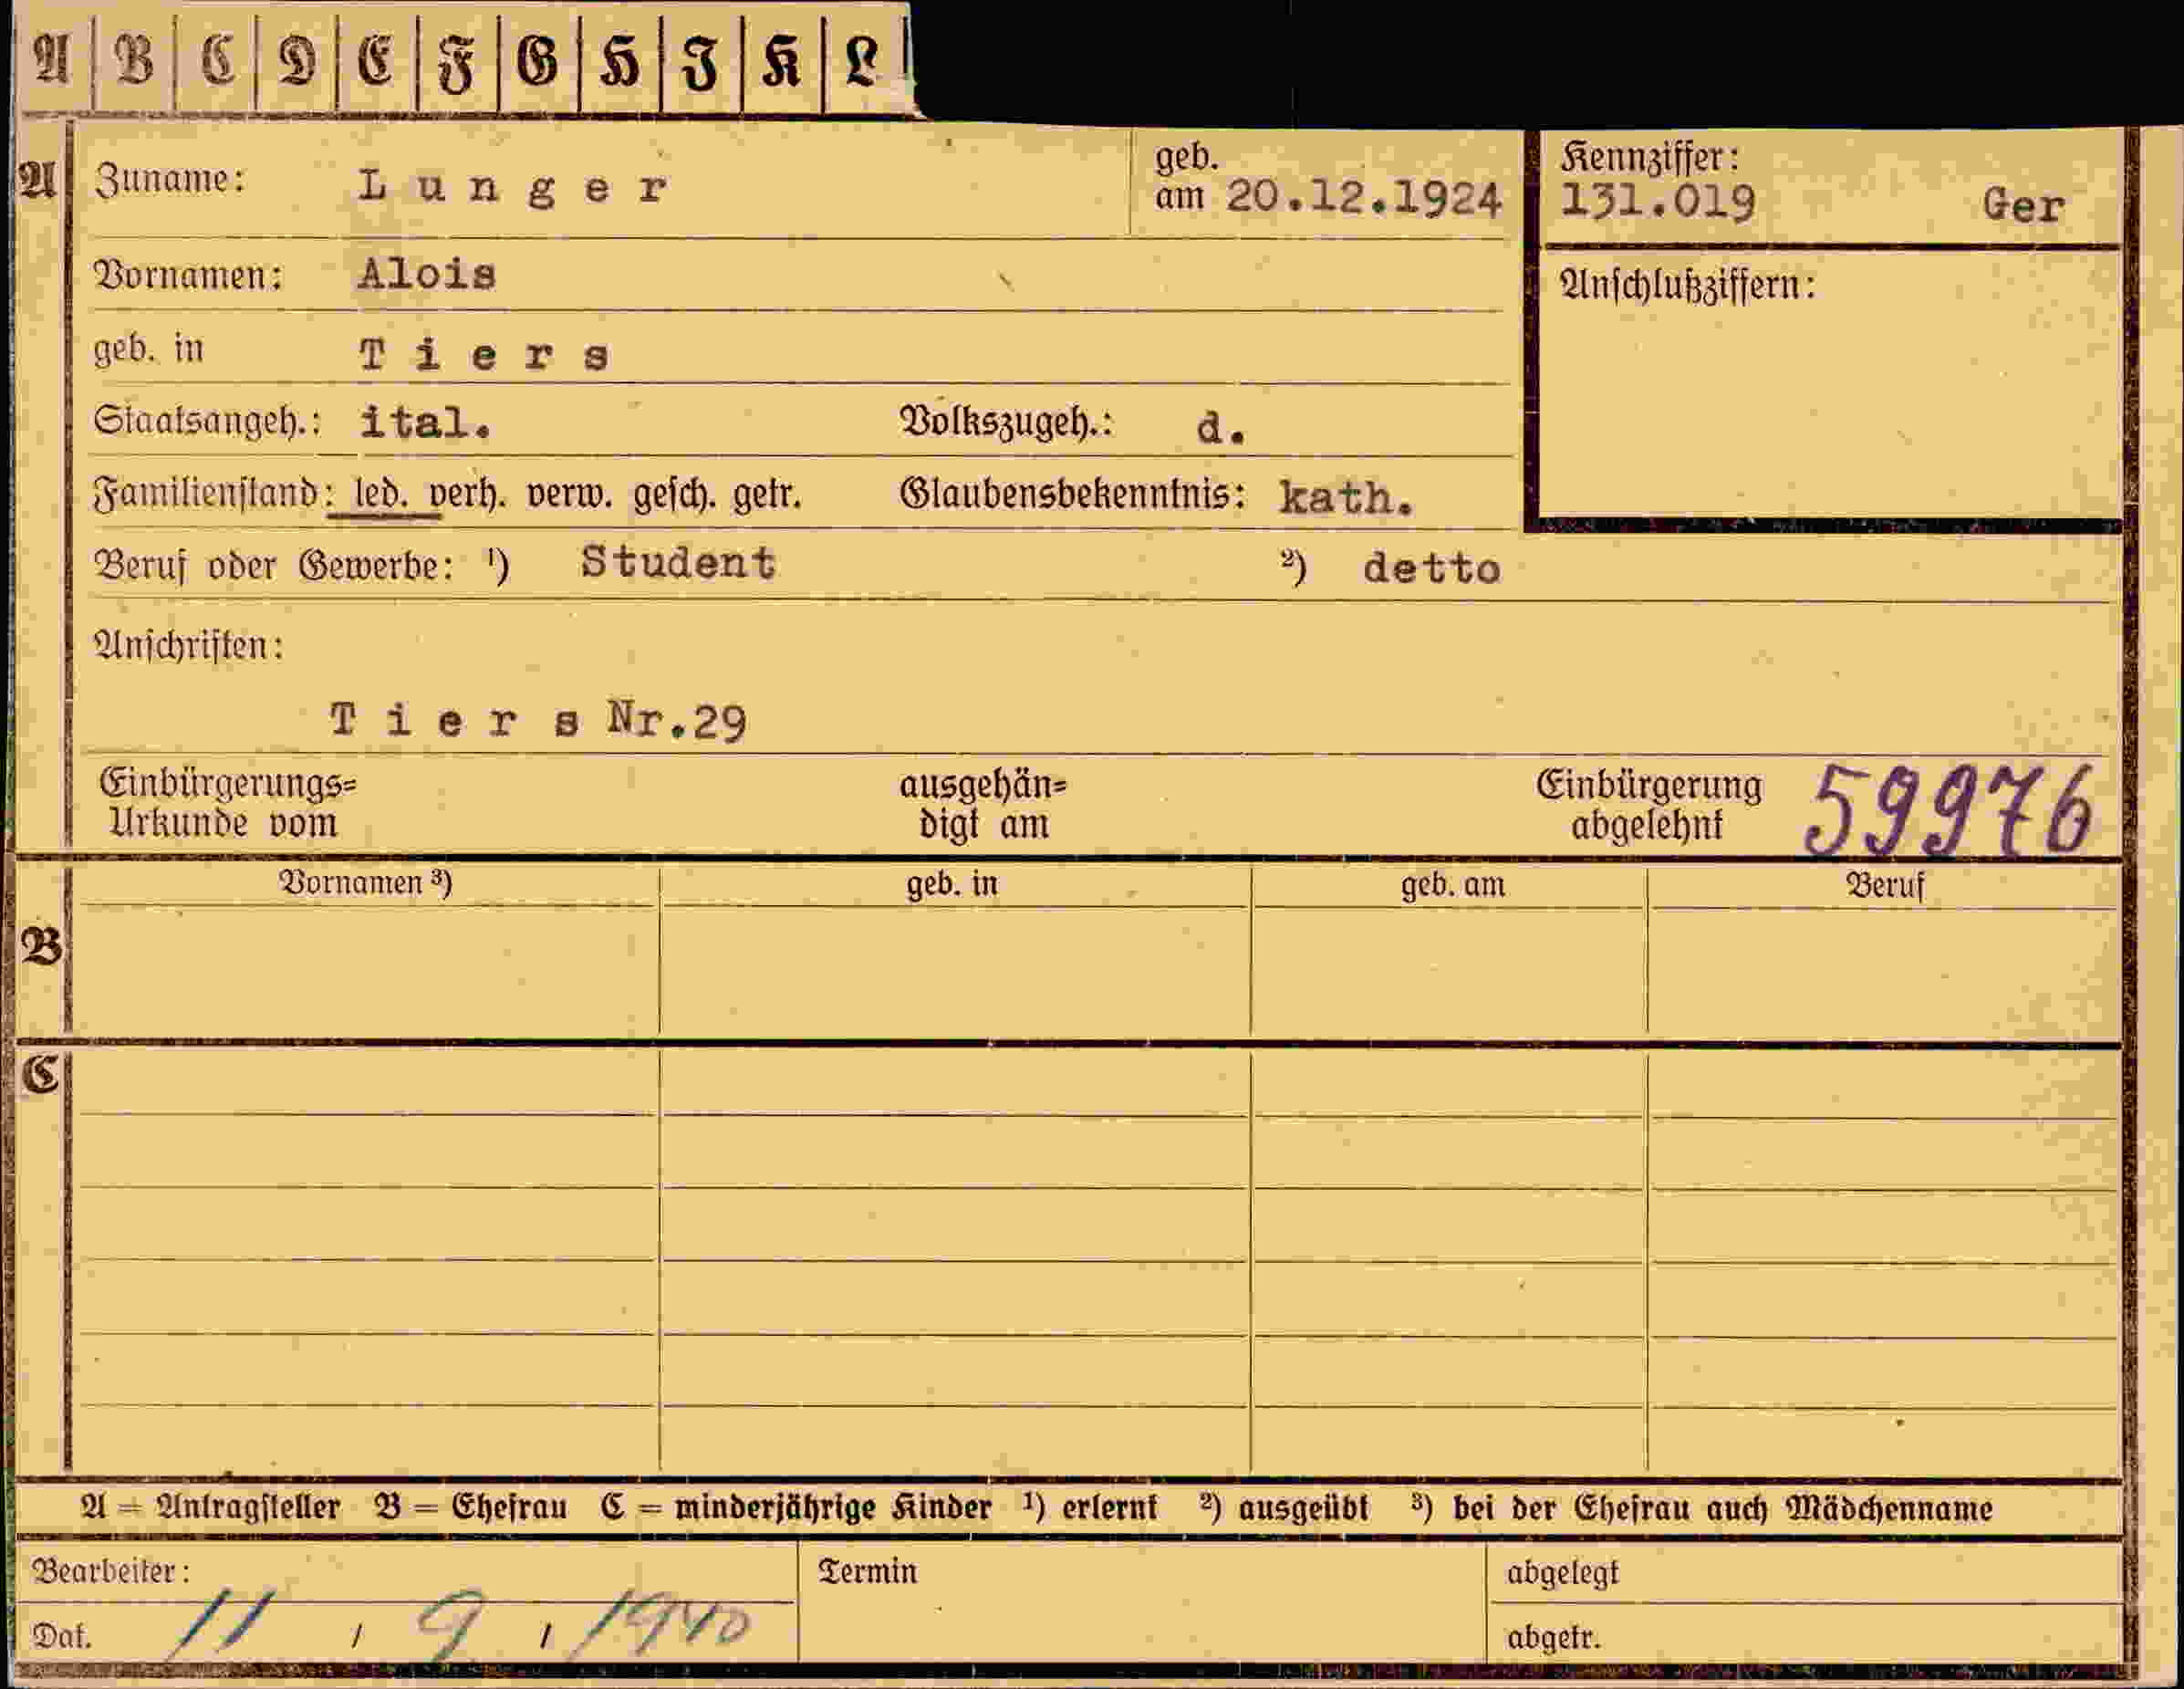 A B C D E F G H I K L
A Zuname: Lunger geb. am 20.12.1924 Kennziffer: 131.019 Ger
Vornamen: Alois Anschlußziffern:
geb. in Tiers
Staatsangeh.: ital. Volkszugeh.: d.
Familienstand: led. verh. verw. gesch. getr. Glaubensbekenntnis: kath.
Beruf oder Gewerbe: ¹) Student ²) detto
Anschriften:
Tiers Nr.29
Einbürgerungs= ausgehän= Einbürgerung 59976
Urkunde vom digt am abgelehnt
Vornamen ³) geb. in geb. am Beruf
B
C
A = Antragsteller B = Ehefrau C = minderjährige Kinder ¹) erlernt ²) ausgeübt ³) bei der Ehefrau auch Mädchenname
Bearbeiter: Termin abgelegt
Dat. 11 / 9 / 1940 abgetr.